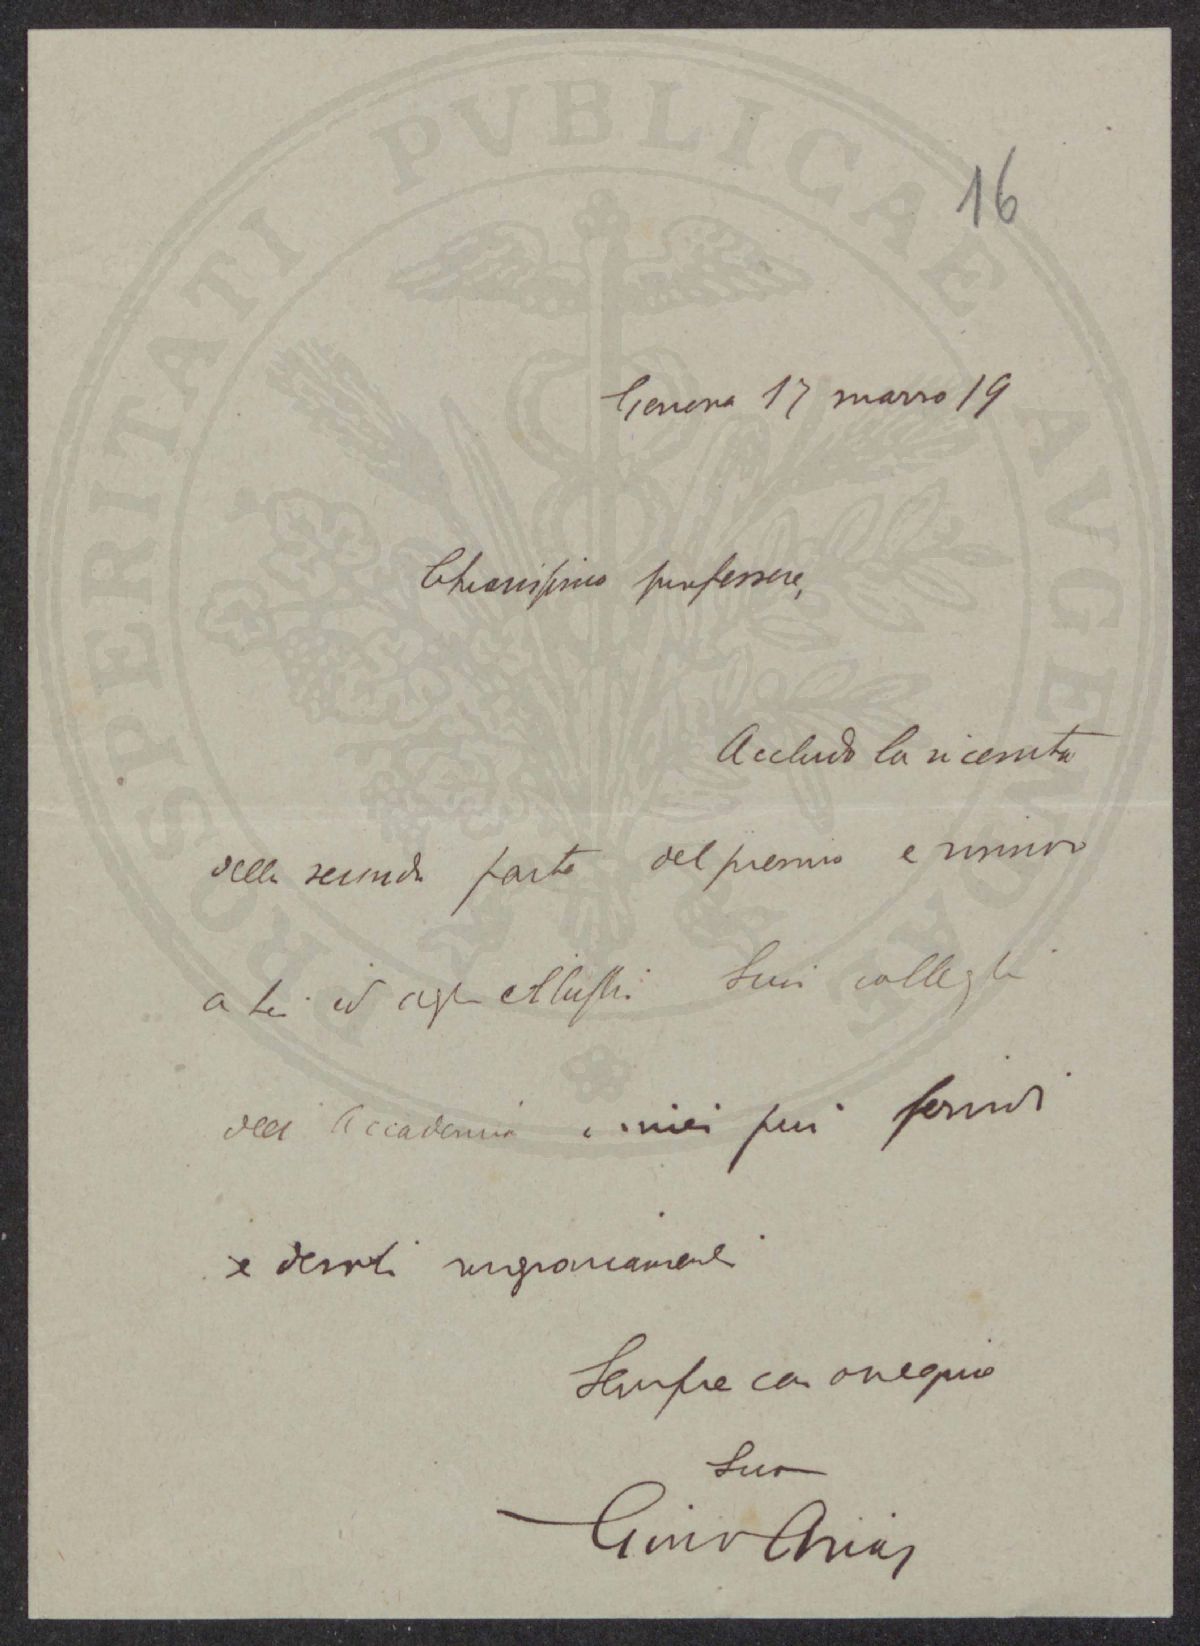 16
Genova 17 marzo 19
Chiarissimo professore,
Accludo la ricevuta
della seconda parte del premio e rinnovo
a Lei ed agli Illustri Suoi colleghi
dell'Accademia i miei più fervidi
e devoti ringraziamenti
Sempre con ossequio
Suo
Gino Arias